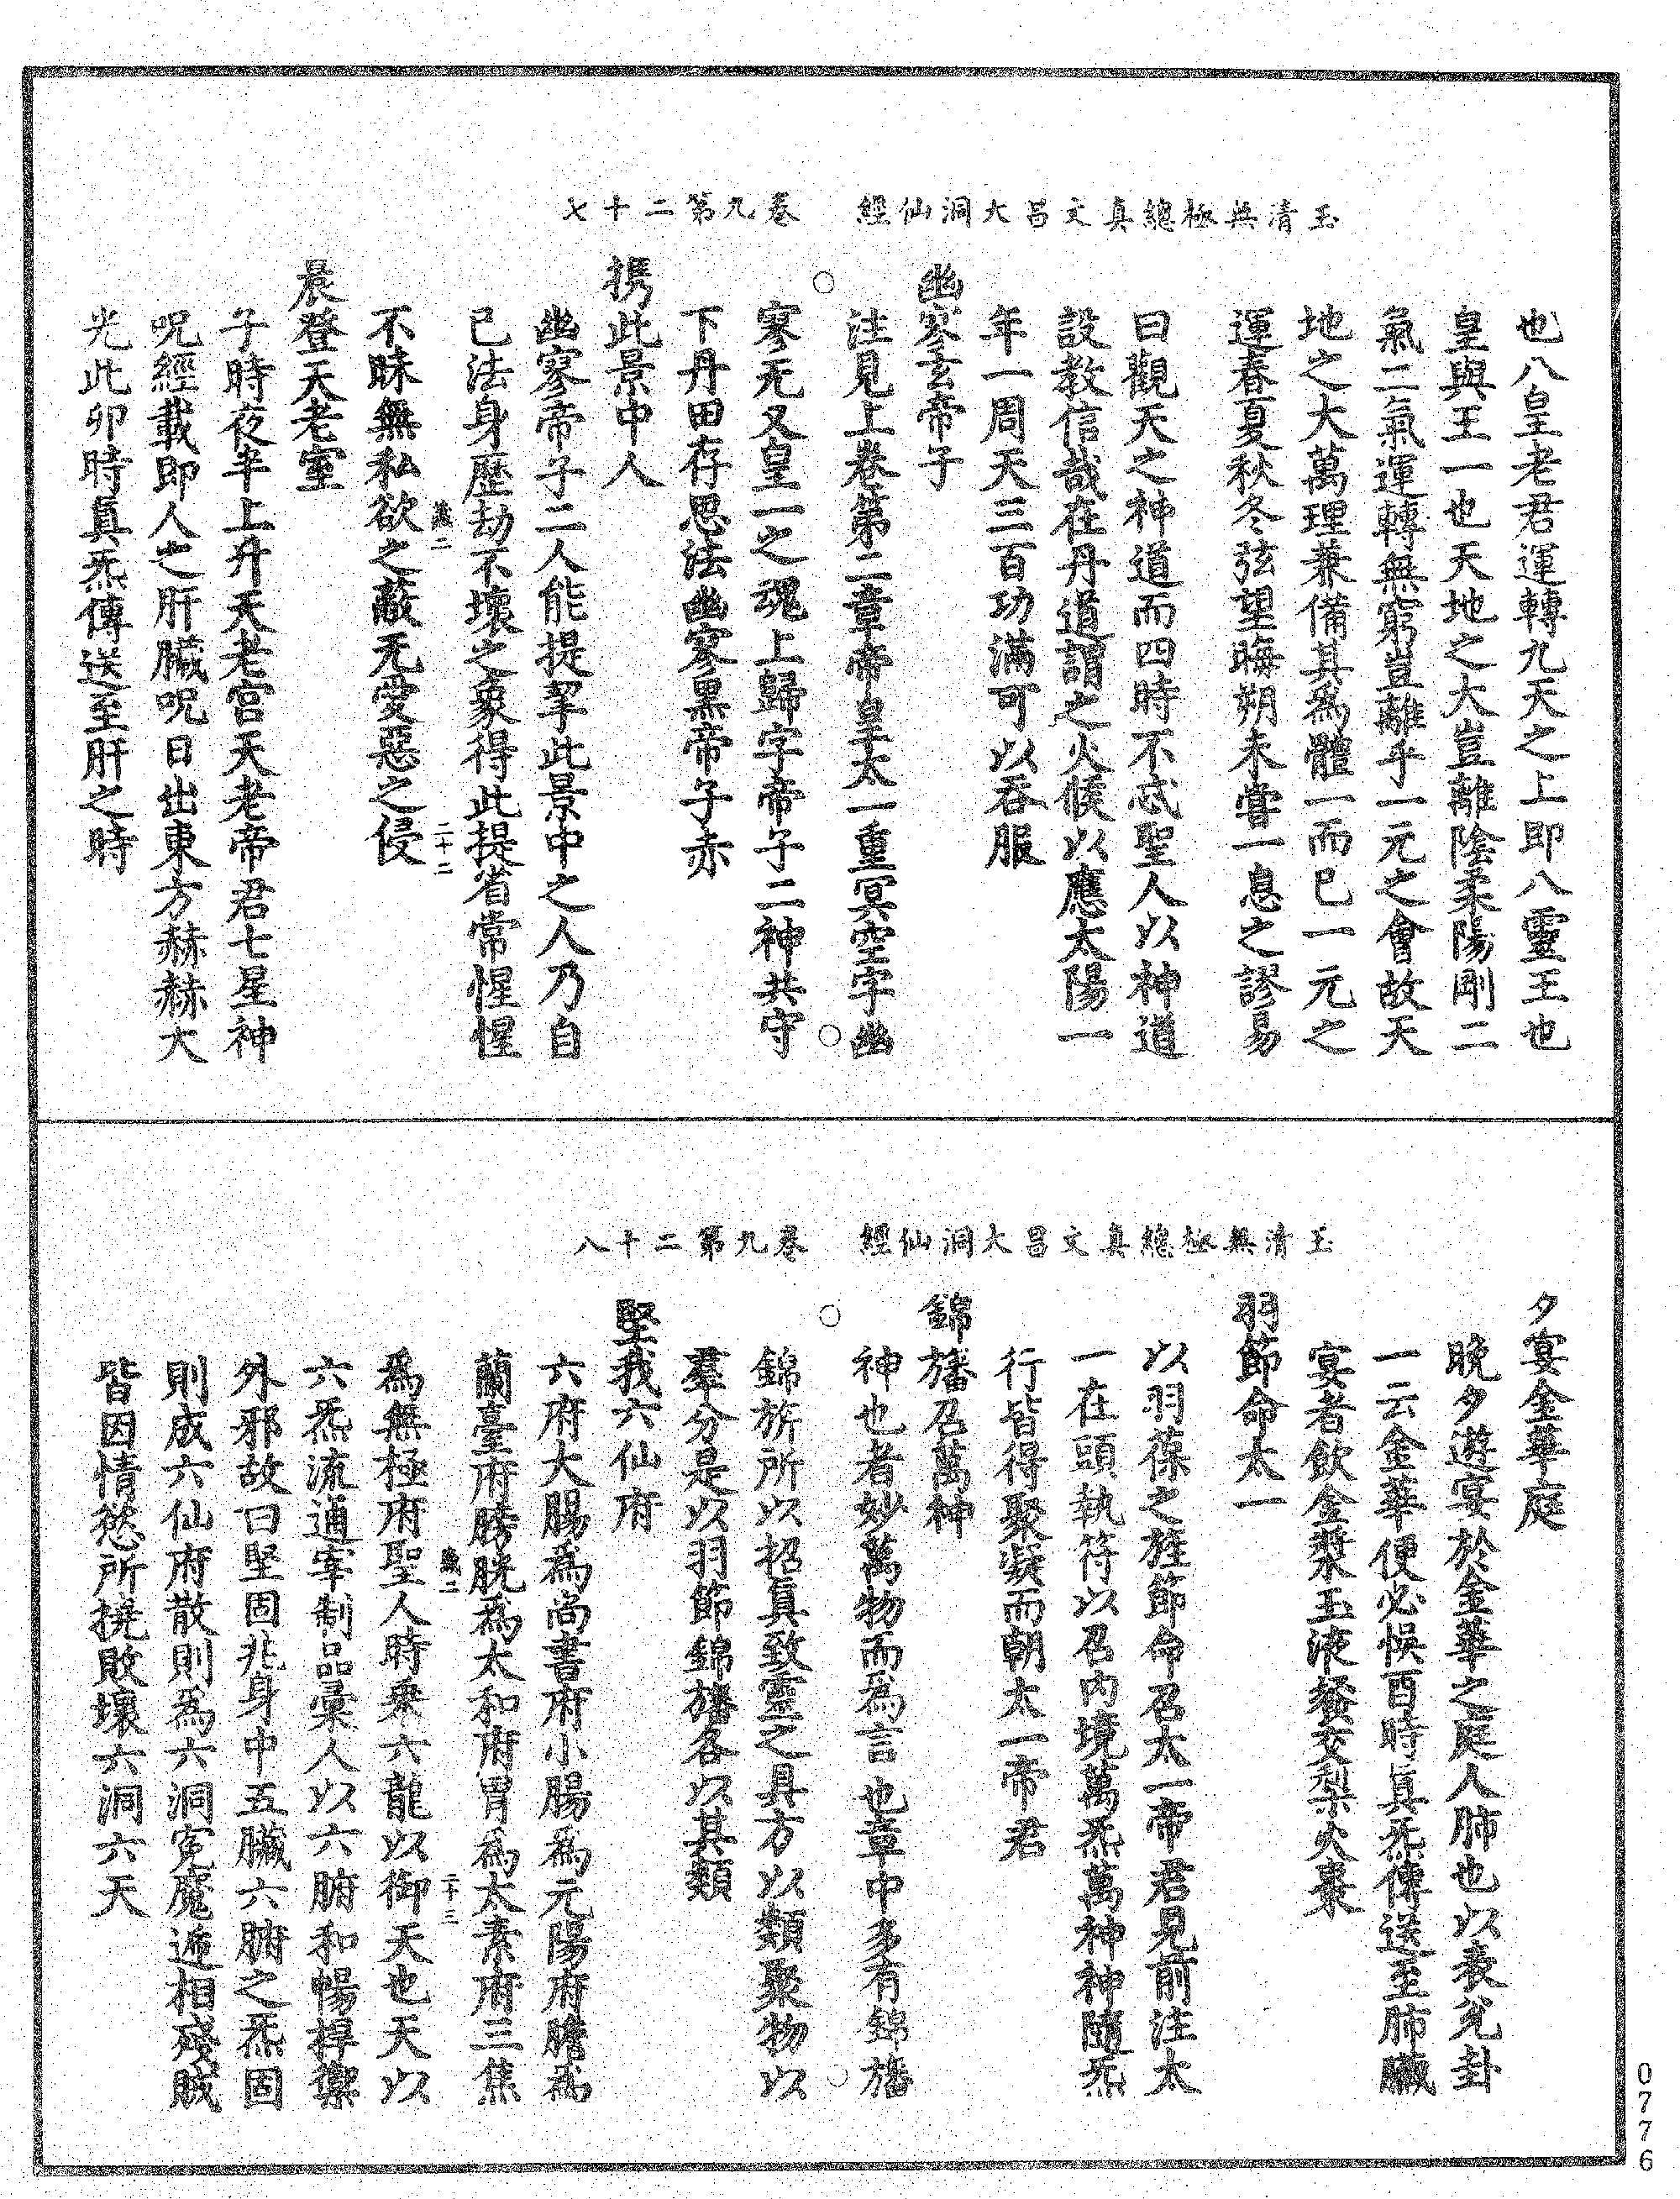 玉清無極總真文昌大洞仙經　卷九第二十七
也八皇老君運轉九天之上即八靈王也
皇與王一也天地之大豈離陰柔陽剛二
氣二氣運轉無窮豈離乎一元之會故天
地之大萬理兼備其為體一而已一元之
運春夏秋冬弦望晦朔未嘗一息之謬易
曰觀天之神道而四時不忒聖人以神道
設教信哉在丹道謂之火候以應太陽一
年一周天三百功滿可以吞服
幽寥玄帝子
注見上卷第二章帝皇太一重冥空字幽
寥无又皇一之魂上歸字帝子二神共守
下丹田存思法幽寥黑帝子赤
携此景中人
幽寥帝子二人能提挈此景中之人乃自
已法身歷劫不壞之象得此提省常惺惺
不昧無私欲之蔽无愛惡之侵
晨登天老室
子時夜半上升天老宮天老帝君七星神
呪經載即人之肝臟呪日出東方赫赫大
光此卯時真炁傳送至肝之時
二十二
玉清無極總真文昌大洞仙經　卷九第二十八
夕宴金華庭
晚夕遊宴於金華之庭人肺也以表兊卦
一云金華便必悞酉時真炁傳送至肺臟
宴者飲金漿玉液餐交梨火棗
羽節命太一
以羽葆之旌節命召太一帝君見前注太
一在頭執符以召內境萬炁萬神神隨炁
行皆得聚凝而朝太一帝君
錦旛召萬神
神也者妙萬物而為言也章中多有錦旛
錦旂所以招真致靈之具方以類聚物以
羣分是以羽節錦旛各以其類
堅我六仙府
六府大腸為尚書府小腸為元陽府膽為
蘭臺府膀胱為太和府胃為太素府三焦
為無極府聖人時乘六龍以御天也天以
六炁流通宰制品彙人以六腑和暢捍禦
外邪故曰堅固兆身中五臟六腑之炁固
則成六仙府散則為六洞寃魔遞相殘賊
皆因情慾所撓敗壞六洞六天
二十三
0776